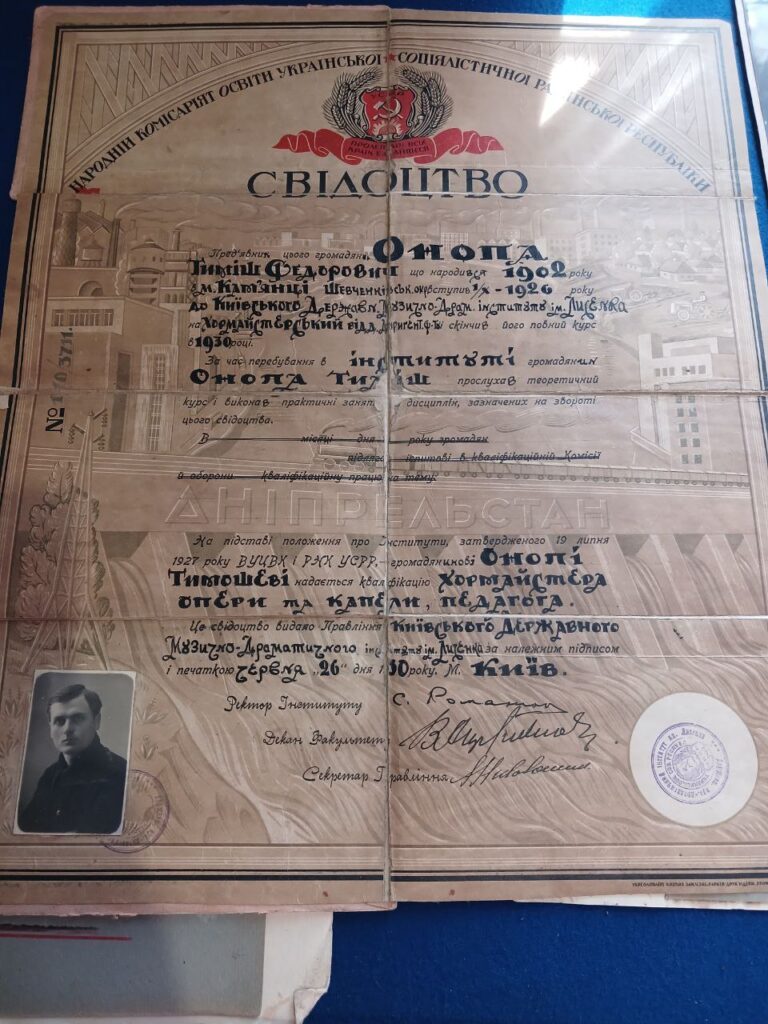 НАРОДНІЙ КОМІСАРІЯТ ОСВІТИ УКРАЇНСЬКОЇ СОЦІЯЛІСТИЧНОЇ РАДЯНСЬКОЇ РЕСПУБЛІКИ
СВІДОЦТВО
Пред'явник цього громадянин ОНОПА
ТИМІШ ФЕДОРОВИЧ що народився 1902 року
в м. КАМ'ЯНЦІ ШЕВЧЕНКІВСЬК. ОКР. вступив 1/X - 1926 року
до КИЇВСЬКОГО ДЕРЖАВН. МУЗИЧНО-ДРАМ. ІНСТИТУТУ ІМ. ЛИСЕНКА
на ХОРМАЙСТЕРСЬКИЙ ВІДД. ДИРИГЕНТ. Ф-ТУ скінчив його повний курс
в 1930 році.
За час перебування в ІНСТИТУТІ громадянин
ОНОПА ТИМІШ прослухав теоретичний
курс і виконав практичні заняття з дисциплін, зазначених на звороті
цього свідоцтва.
В місяці дня року громадян
підлягав іспитові в кваліфікаційній Комісії
й оборони кваліфікаційну працю на тему:
ДНІПРЕЛЬСТАН
На підставі положення про Інститути, затвердженого 19 липня
1927 року ВУЦВК і РНК УСРР,— громадянинові ОНОПІ
ТИМОШЕВІ надається кваліфікацію ХОРМАЙСТЕРА
ОПЕРИ ТА КАПЕЛИ, ПЕДАГОГА.
Це свідоцтво видало Правління КИЇВСЬКОГО ДЕРЖАВНОГО
МУЗИЧНО-ДРАМАТИЧНОГО ІНСТИТУТУ ІМ. ЛИСЕНКА за належним підписом
і печаткою ЧЕРВНЯ „26" дня 1930 року. М. КИЇВ.
Ректор Інституту
Декан Факультету
Секретар Правління